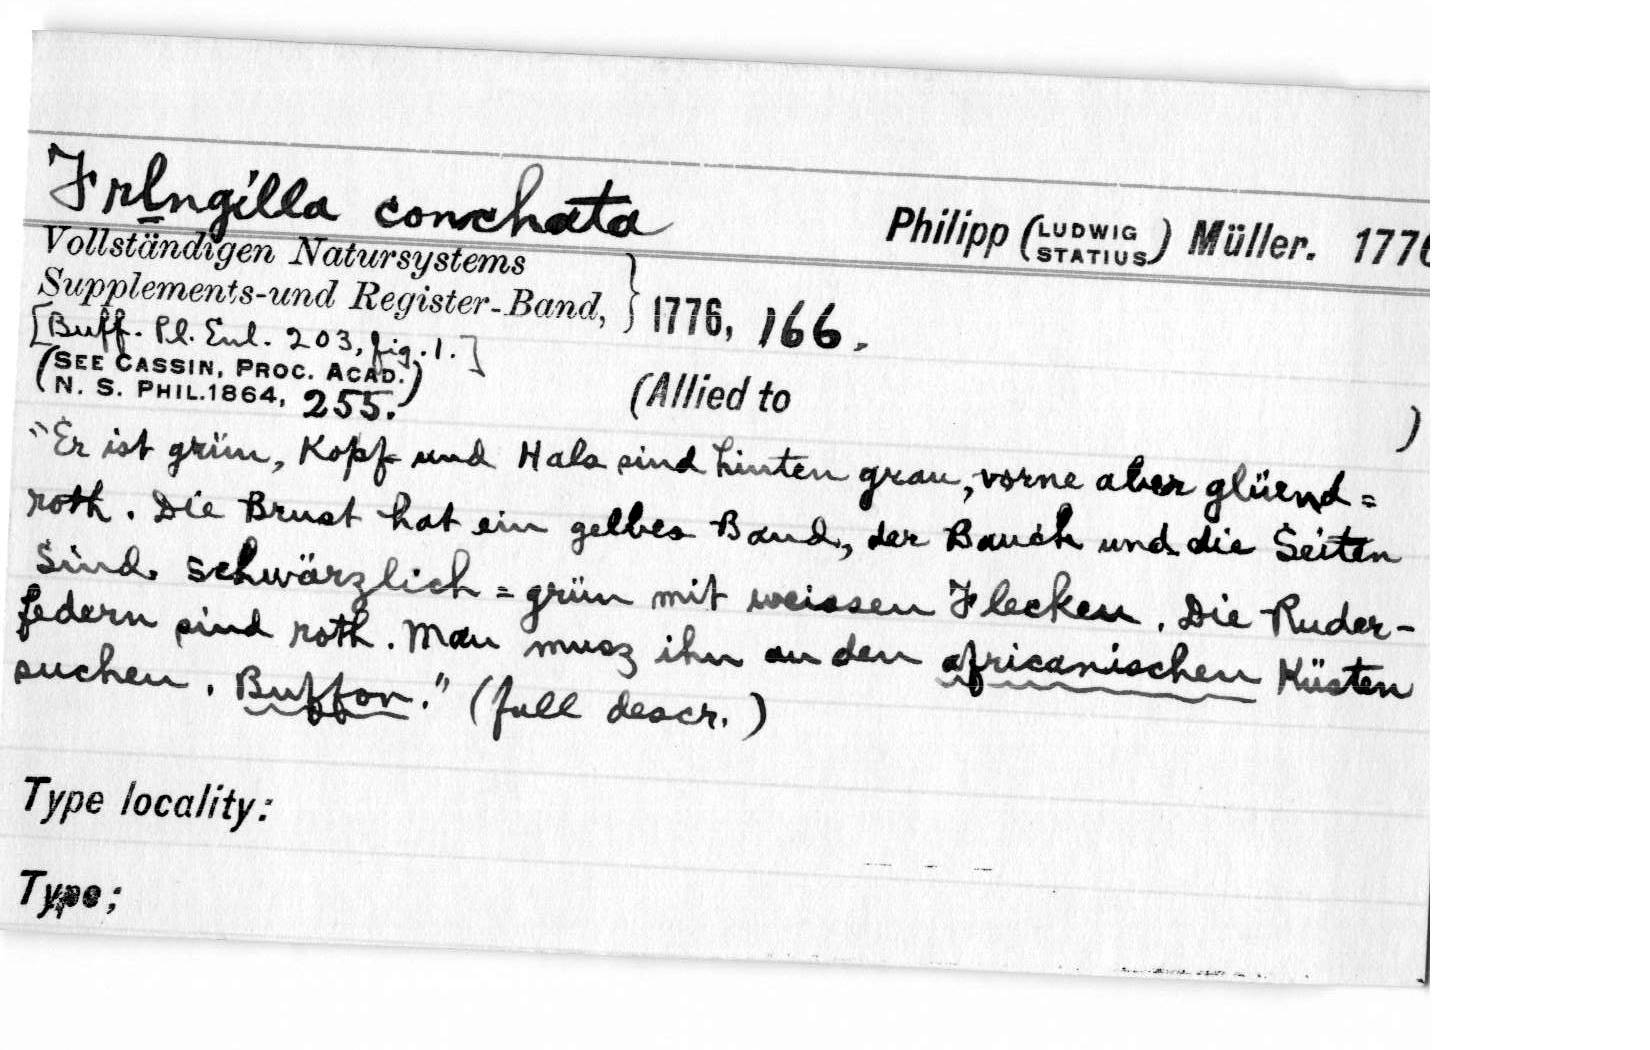 Fringilla conchata
Philipp (LUDWIG STATIUS) Müller. 1776
Vollständigen Natursystems
Supplements-und Register-Band, } 1776, 166.
[Buff. Pl. Enl. 203, fig. 1.]
(SEE CASSIN, PROC. ACAD.
N. S. PHIL. 1864, 255.)
(Allied to )
"Er ist grün, Kopf und Hals sind hinten grau, vorne aber glüend=
roth. Die Brust hat ein gelbes Band, der Bauch und die Seiten
sind schwärzlich=grün mit weissen Flecken. Die Ruder-
federn sind roth. Man musz ihn an den africanischen Küsten
suchen. Buffon." (full descr.)
Type locality:
Type;